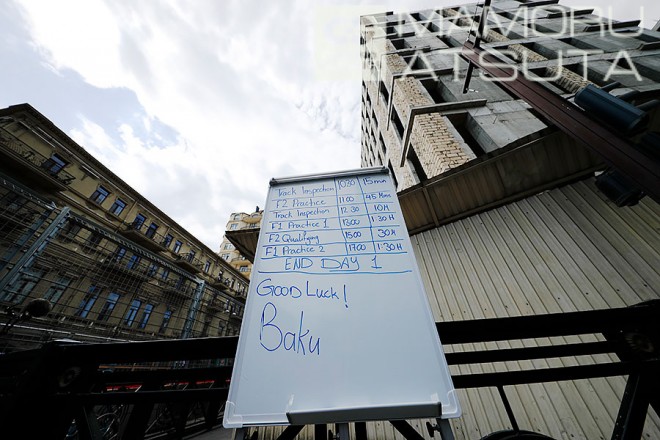 MAMORU
ATSUTA
Track Inspection 1030 15 min
F2 Practice 1100 45 Min
Track Inspection 12.30 10M
F1 Practice 1 1300 1:30H
F2 Qualifying 1500 30M
F1 Practice 2 1700 1:30H
END DAY 1
Good Luck!
Baku